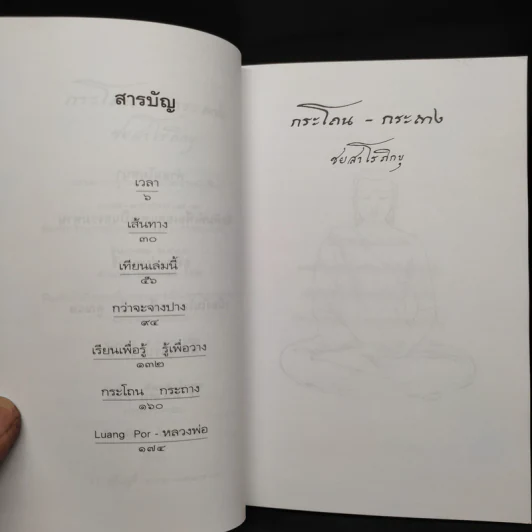 สารบัญ
เวลา
๖
เส้นทาง
๓๐
เทียนเล่มนี้
๕๖
กว่าจะจางปาง
๙๔
เรียนเพื่อรู้ รู้เพื่อวาง
๑๓๒
กระโถน กระถาง
๑๖๐
Luang Por - หลวงพ่อ
๑๗๔
กระโถน - กระถาง
ชยสาโรภิกขุ